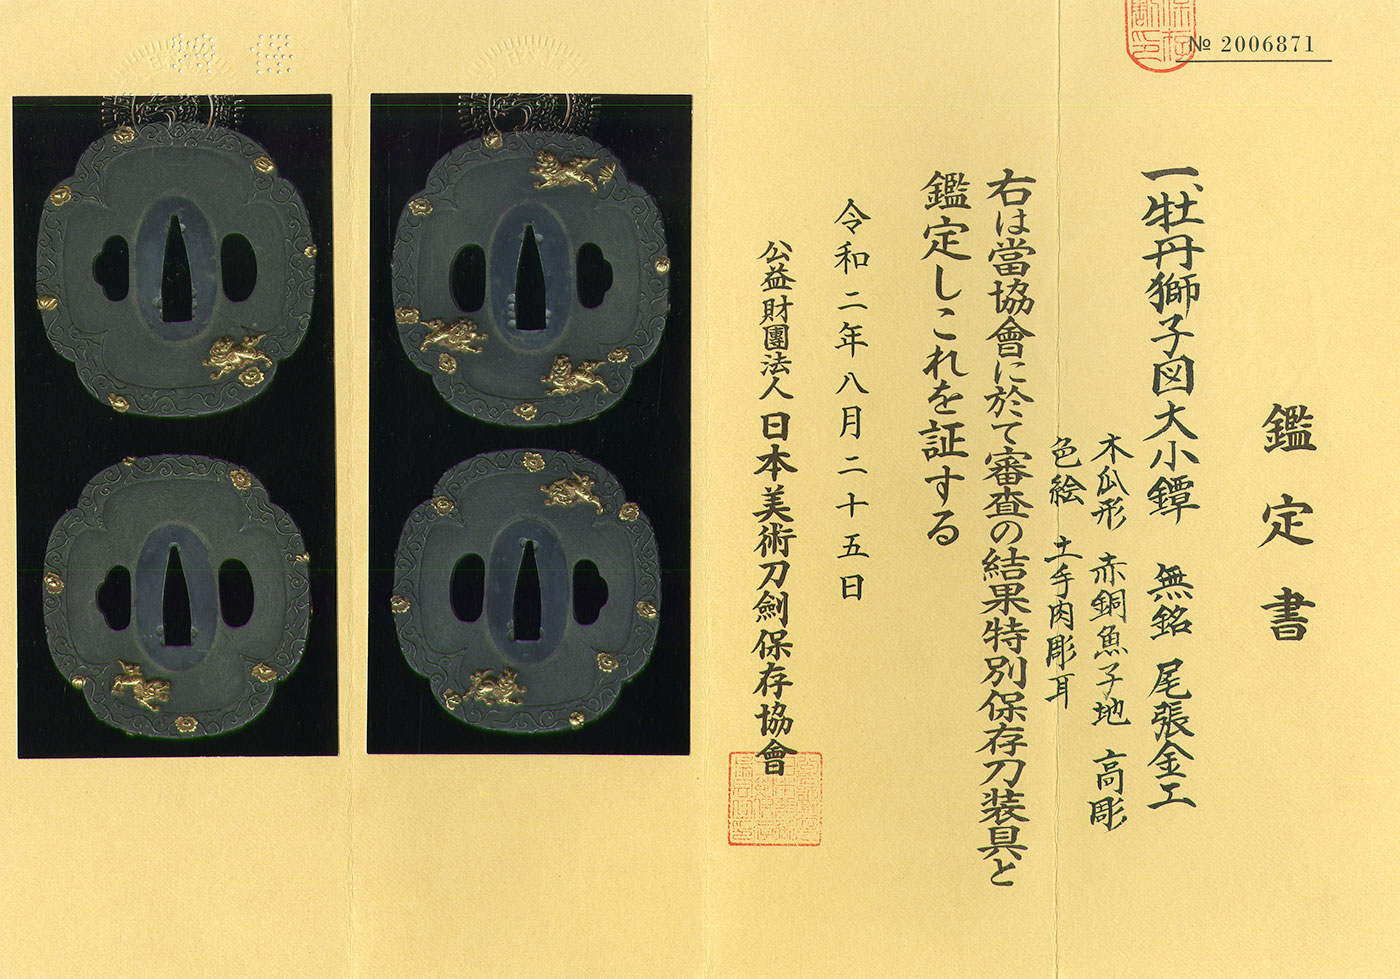 № 2006871
鑑定書
一、牡丹獅子図大小鐔 無銘 尾張金工
木瓜形 赤銅魚子地 高彫
色絵 土手肉彫耳
右は當協會に於て審査の結果特別保存刀装具と
鑑定しこれを証する
令和二年八月二十五日
公益財團法人 日本美術刀劍保存協會